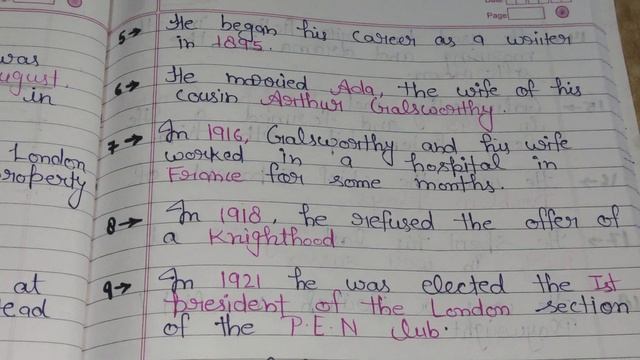 Page
5→ He began his career as a writer
in 1895.
6→ He married Ada, the wife of his
cousin Arthur Galsworthy.
7→ In 1916, Galsworthy and his wife
worked in a hospital in
France for some months.
8→ In 1918, he refused the offer of
a Knighthood.
9→ In 1921 he was elected the Ist
president of the London section
of the P.E.N club.
was
August.
in
London
property
at